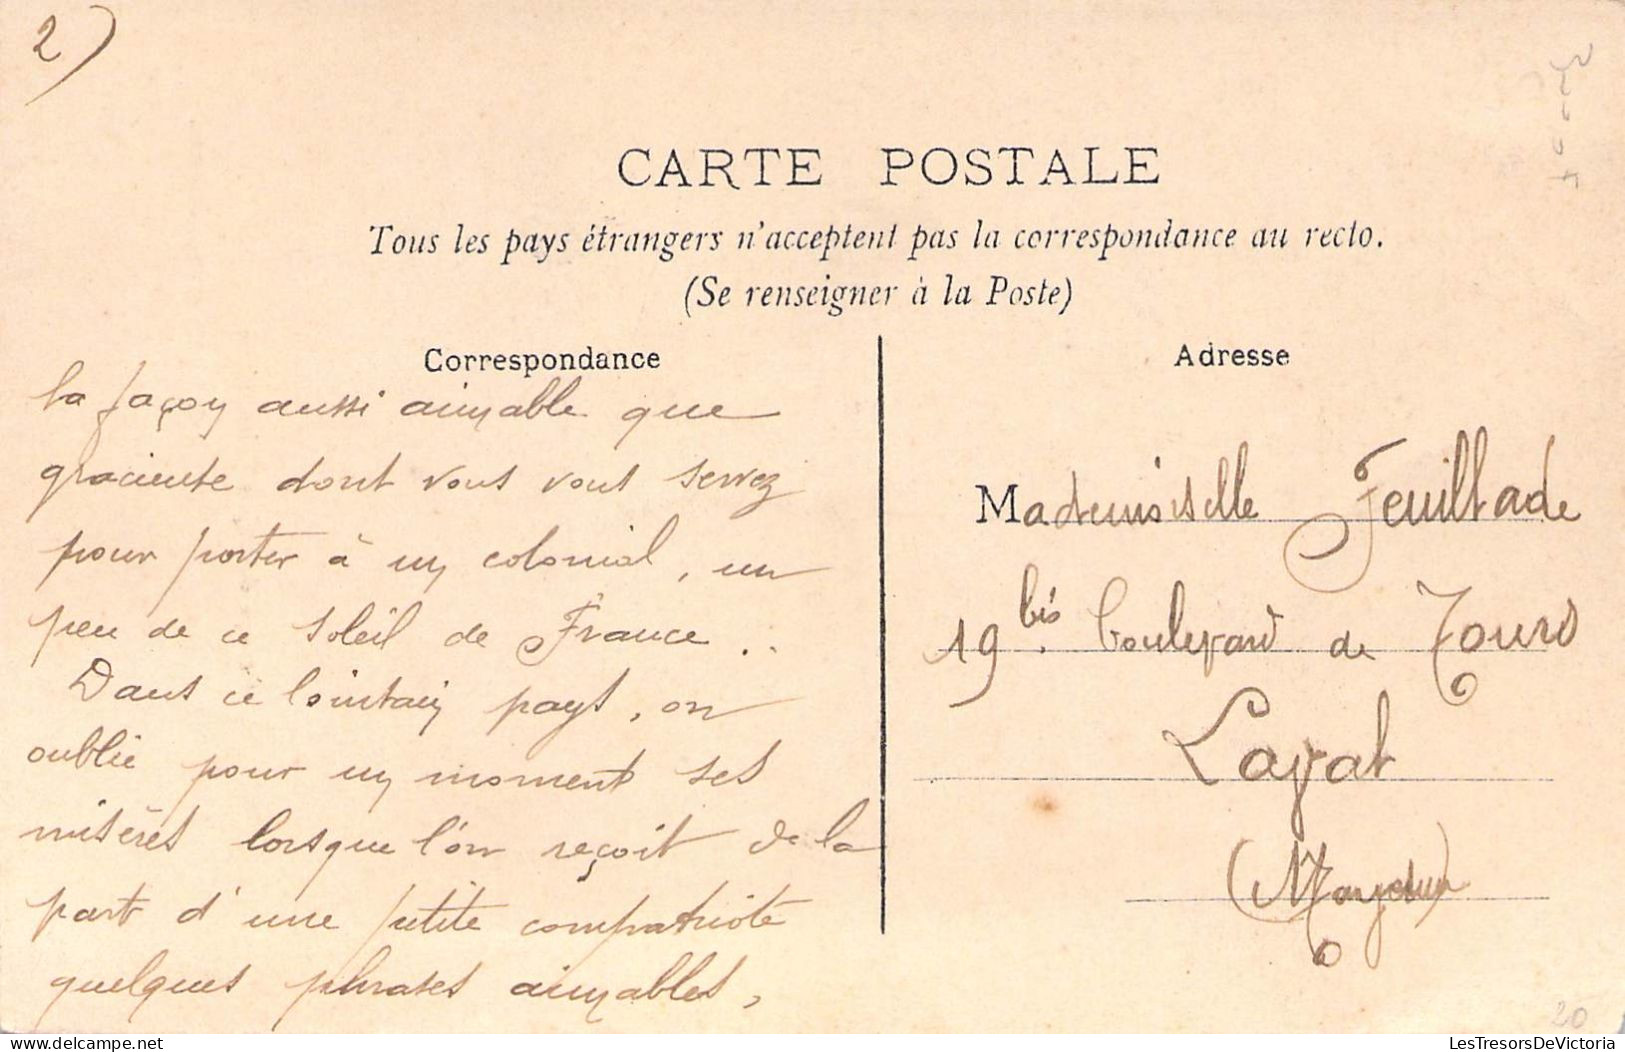 2)
CARTE POSTALE
Tous les pays étrangers n'acceptent pas la correspondance au recto.
(Se renseigner à la Poste)
Correspondance
la façon aussi aimable que
gracieuse dont vous vous servez
pour porter à un colonial, un
peu de ce soleil de France..
Dans ce lointain pays, on
oublie pour un moment ses
misères lorsque l'on reçoit de la
part d'une petite compatriote
quelques phrases aimables,
Adresse
Mademoiselle Feuillade
19 bis. boulevard de Tours
Laval
(Mayenne)
20
LesTresorsDeVictoria